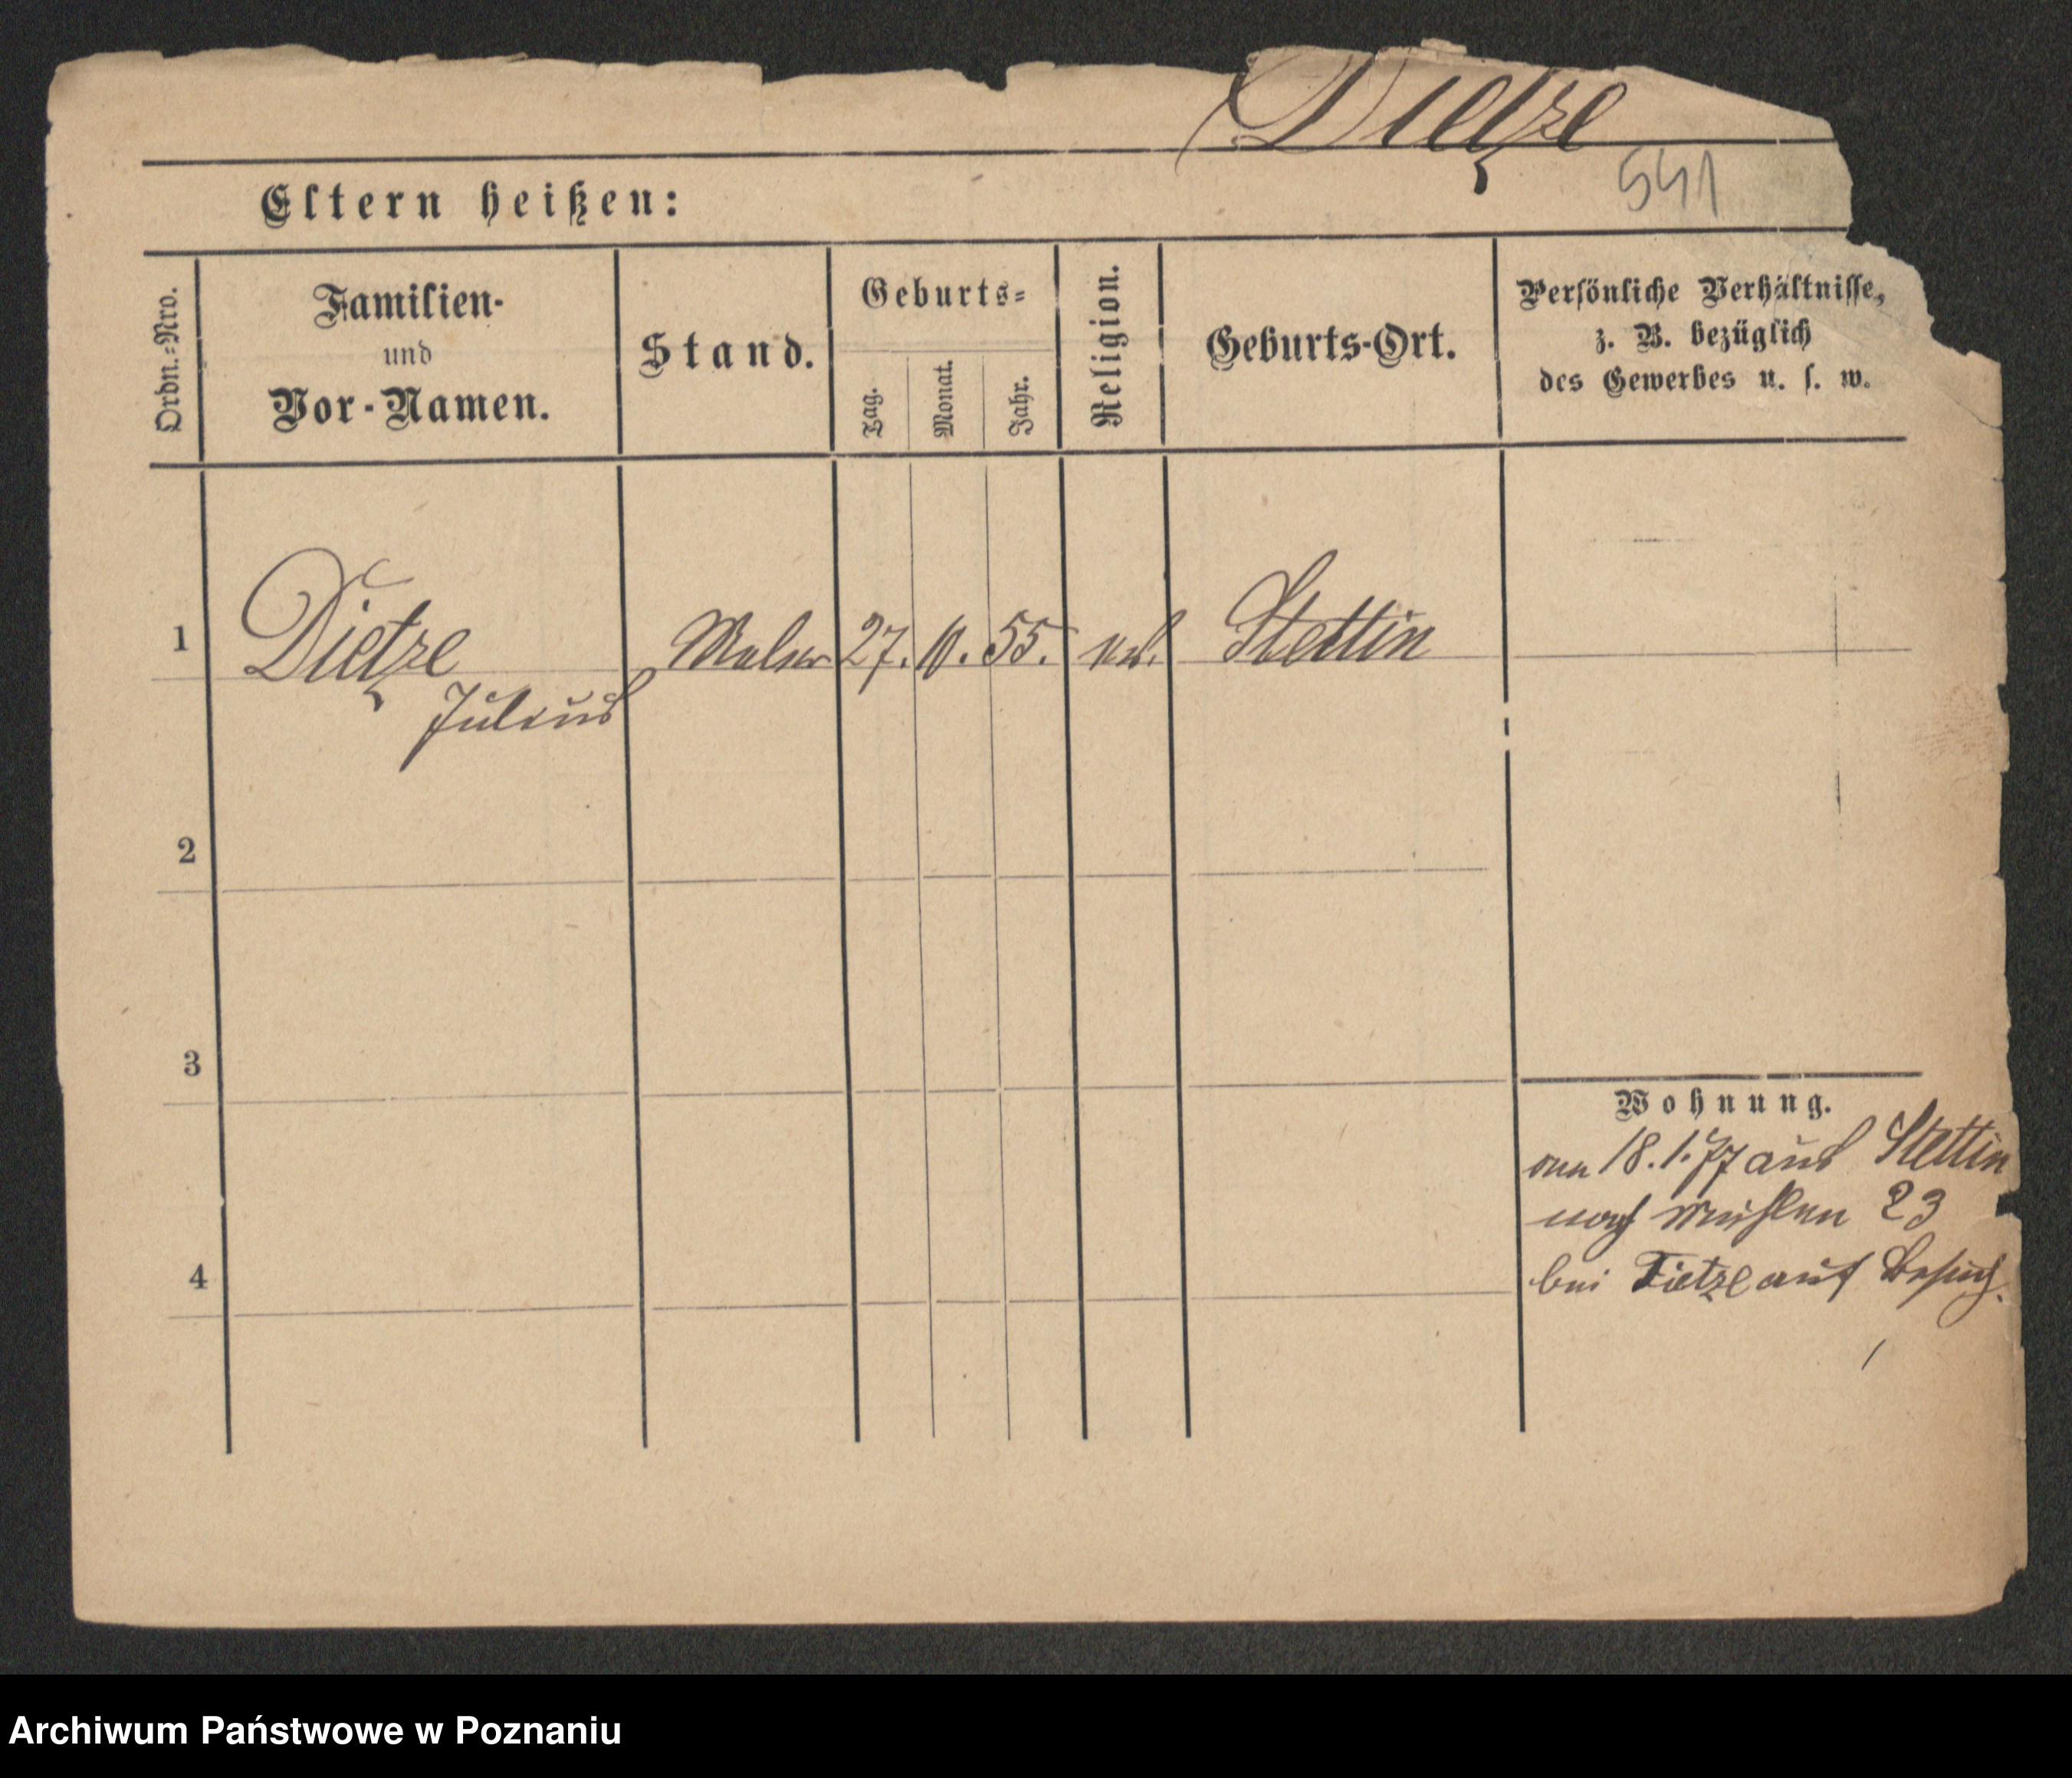 Dietze
541
Eltern heißen:
Ordn.=Nro.
Familien-
und
Vor-Namen.
Stand.
Geburts=
Tag.
Monat.
Jahr.
Religion.
Geburts-Ort.
Persönliche Verhältnisse,
z. B. bezüglich
des Gewerbes u. s. w.
1 Dietze Maler 27. 10. 55. Stettin
Julius
2
3
Wohnung.
am 18.1.77 aus Stettin
nach Mühlen 23
4
bei Tietze auf Besuch.
Archiwum Państwowe w Poznaniu